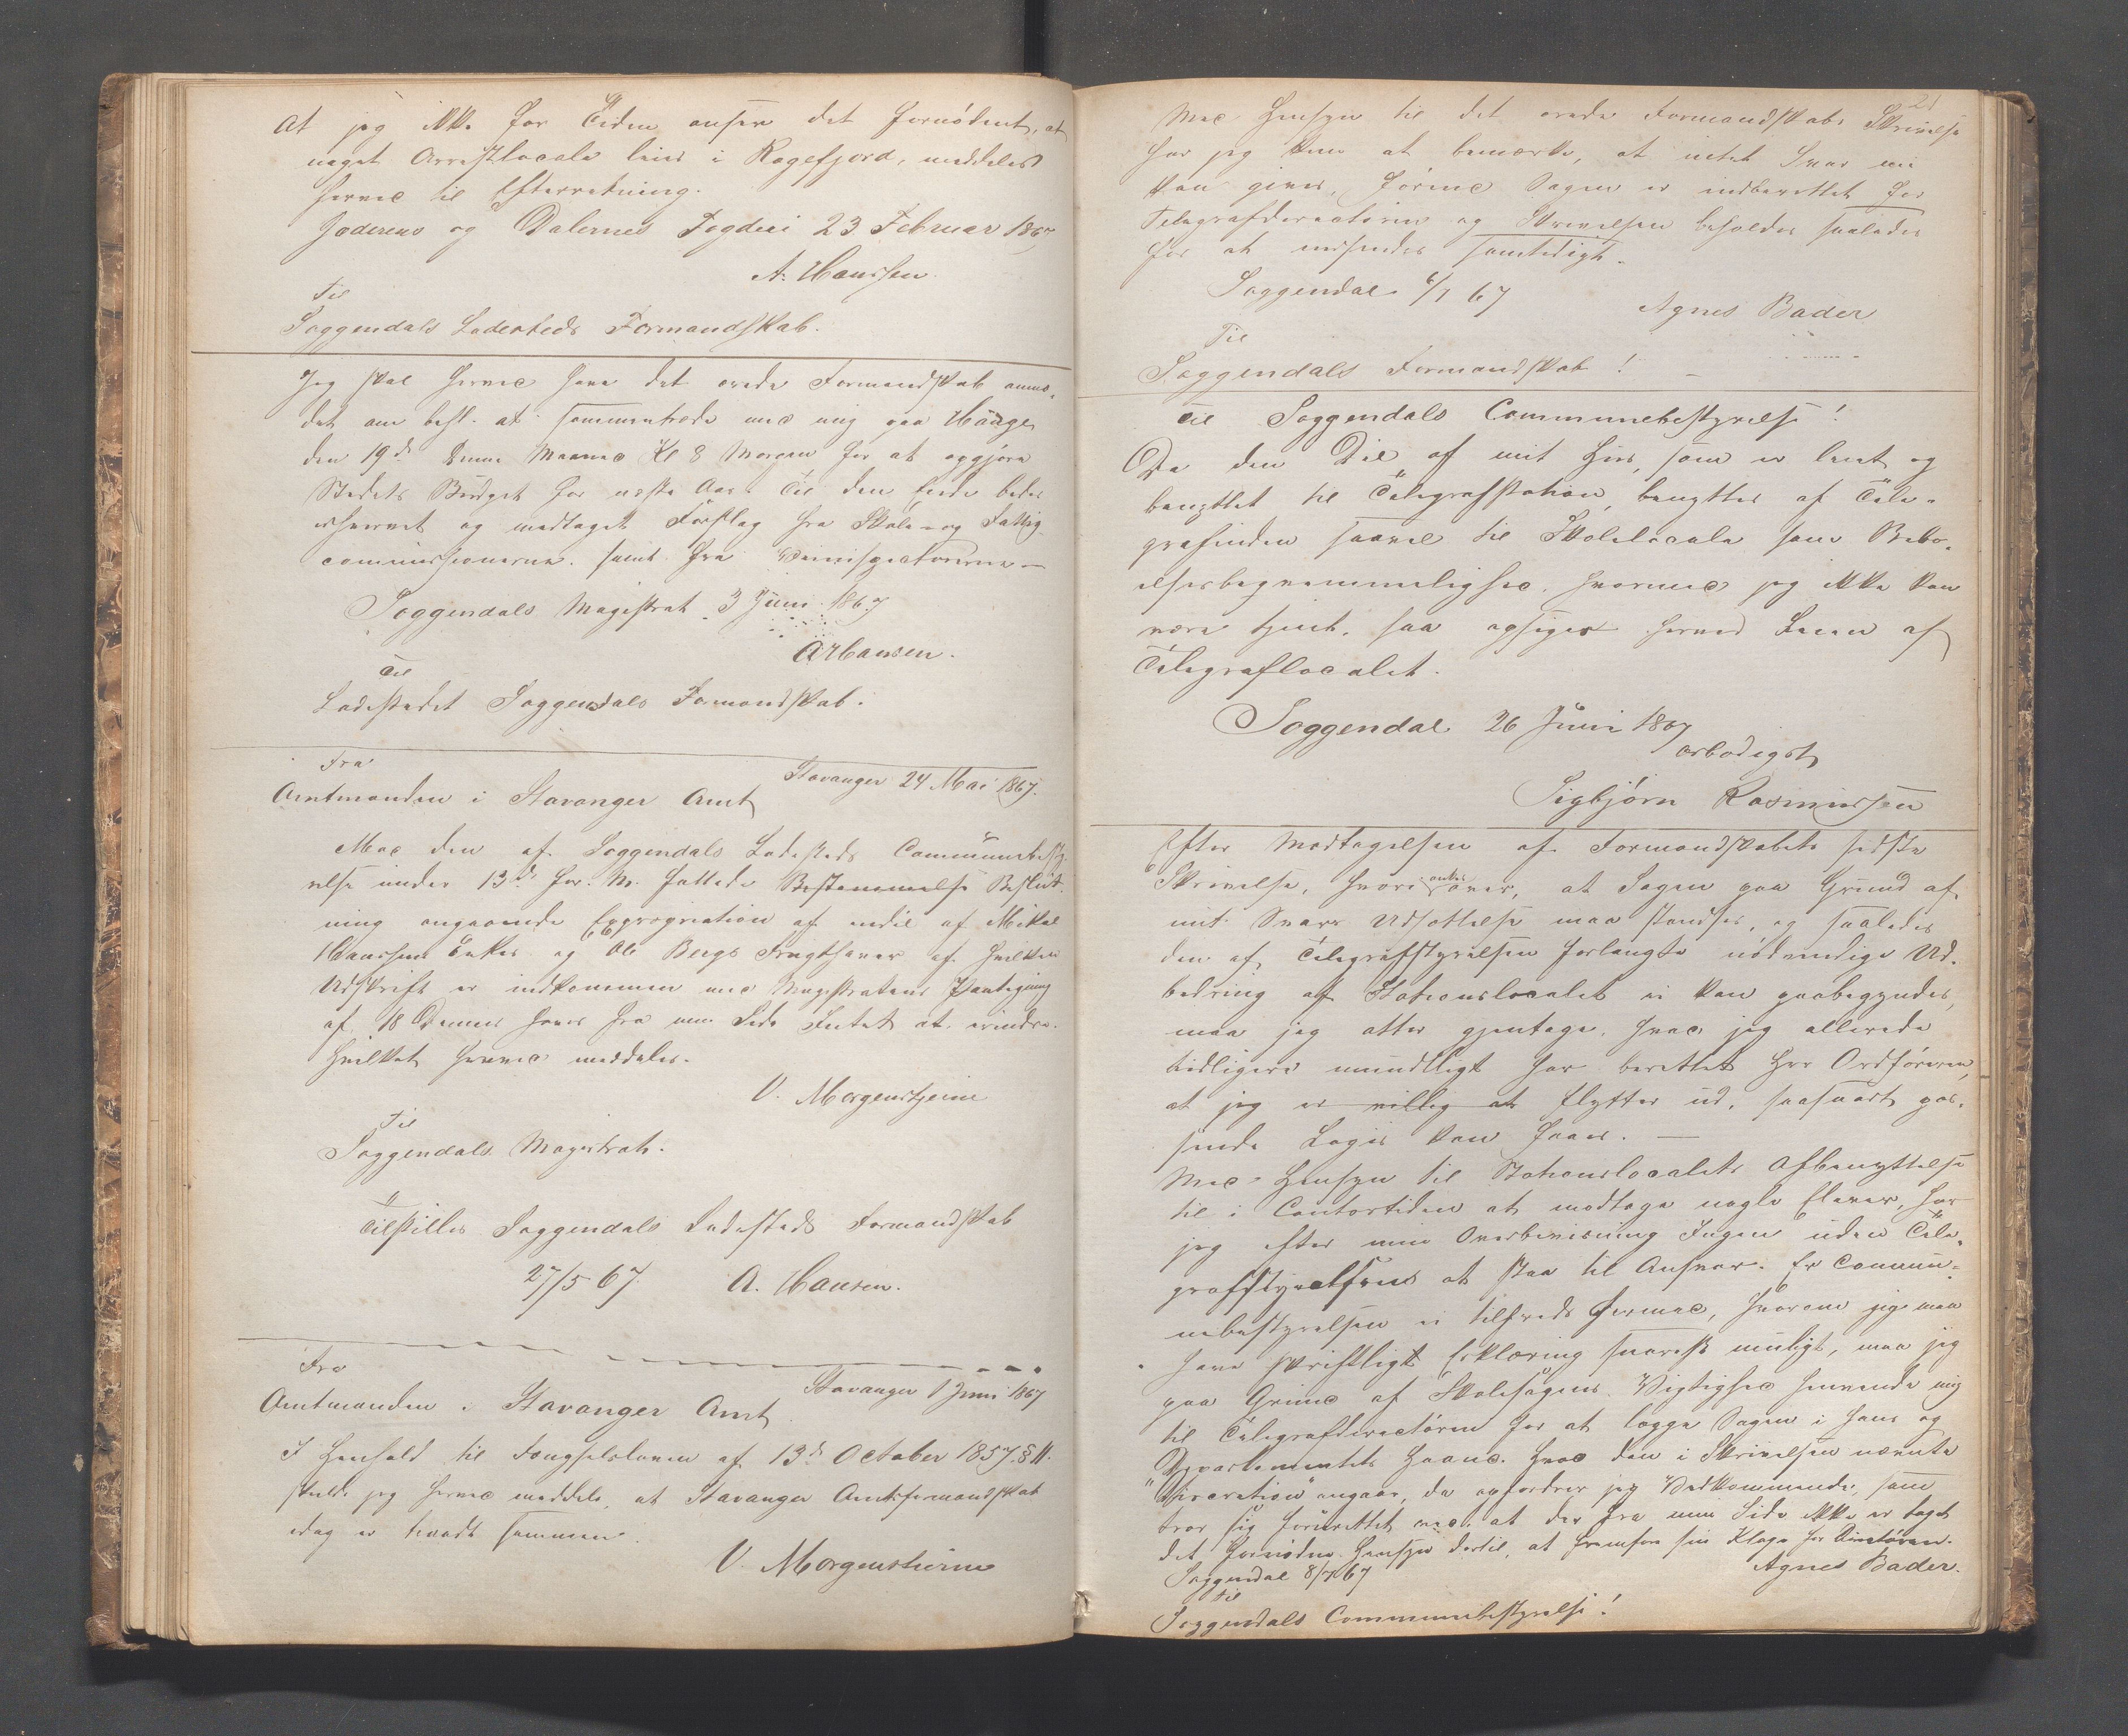 At jeg ikke for Tiden anser det fornödent, at
noget Arrestlocale leies i Rægefjord, meddeles
herved til Efterretning.
Jæderens og Dalernes Fogderi 23 Februar 1867
A. Hanssen
Til
Soggendals Ladesteds Formandskab.
Jeg skal herved have det ærede Formandskab anmo-
det om behl. at sammentræde med mig paa Hauge
den 19de denne Maaned Kl 8 Morgen for at opgjöre
Stedets Budget for næste Aar. Til den Ende bedes
erhvervet og medtaget Forslag fra Skole- og Fattig-
commissionerne samt fra Veiinspecteurerne –
Soggendals Magistrat 3 Juni 1867
A Hansen.
Til
Ladestedet Soggendals Formandskab.
Fra
Amtmanden i Stavanger Amt
Stavanger 24 Mai 1867.
Mod den af Soggendals Ladesteds Communebesty-
relse under 13de for. M. fattede Bestemmelse Beslut-
ning angaaende Expropriation af endel af Mikal
Hanssens Enkes og Ole Bergs Frugthaver af hvilken
Udskrift er indkommen med Magistratens Paategning
af 18 Dennes haves fra min Side Intet at erindre.
Hvilket herved meddeles.
V. Morgenstjerne
Til
Soggendals Magistrat.
Tilstilles Soggendals Ladesteds Formandskab
27/5 67. A. Hansen.
Fra
Amtmanden i Stavanger Amt
Stavanger 1 Juni 1867
I Henhold til Fængselsloven af 13de October 1857 § 11.
skulde jeg herved meddele, at Stavanger Amtsformandskab
idag er traadt sammen.
V. Morgenstierne
21
Med Hensyn til det ærede Formandskabs Skrivelse
har jeg kun at bemærke, at intet Svar nu
kan gives, förend Sagen er indberettet for
Telegrafdirectören og Skrivelsen beholdes saaledes
for at indsendes samtidigt.
Soggendal 6/7 67
Agnes Bader
Til
Soggendals Formandskab!
Til Soggendals Communebestyrelse!
Da den Del af mit Hus, som er leiet og
benyttet til Telegrafstation, benyttes af Tele-
grafinden saavel til Skolelocale som Bebo-
elsesbeqvemmelighed, hvormed jeg ikke kan
være tjent, saa opsiges herved Leien af
Telegraflocalet.
Soggendal 26 Juni 1867
ærbödigst
Sigbjörn Rasmussen
Efter Modtagelsen af Formandskabets sidste
Skrivelse, hvori ankes over, at Sagen paa Grund af
mit Svars Udsættelse maa standses, og saaledes
den af Telegrafstyrelsen forlangte nödvendige Ud-
bedring af Stationslocalet ei kan paabegyndes,
maa jeg atter gjentage, hvad jeg allerede
tidligere mundtligt har berettet Hr Ordföreren,
at jeg er villig at flytter ud, saasnart pas-
sende Logis kan faaes. –
Med Hensyn til Stationslocalets Afbenyttelse
til i Contortiden at modtage nogle Elever, har
jeg efter min Overbevisning Ingen uden Tele-
grafstyrelsens at staa til Ansvar. Er Commu-
nebestyrelsen ei tilfreds hermed, hvorom jeg maa
have skriftligt Erklæring snarest muligt, maa jeg
paa Grund af Skolesagens Vigtighed henvende mig
til Telegrafdirectören for at lægge Sagen i hans og
Departementets Haand. Hvad den i Skrivelsen nævnte
"Discretion" angaar, da opfordrer jeg Vedkommende, som
tror sig forurettet ved at der fra min Side ikke er taget
det fornödne Hensyn dertil, at fremföre sin Klage for Directören.
Soggendal 8/7 67
Agnes Bader.
Til
Soggendals Communebestyrelse!